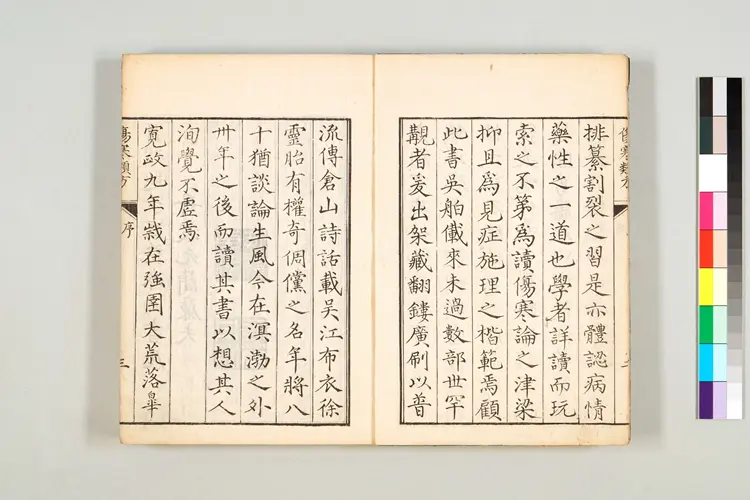 排纂割裂之習是亦體認病情
藥性之一道也學者詳讀而玩
索之不第為讀傷寒論之津梁
抑且為見症施理之楷範焉顧
此書吳舶儎來未過數部世罕
覯者爰出架藏翻鏤廣刷以普
流傳倉山詩話載吳江布衣徐
靈胎有權奇倜儻之名年將八
十猶談論生風今在溟渤之外
卅年之後而讀其書以想其人
洵覺不虛焉
寬政九年歲在強圉大荒落皐
傷寒類方
序
三